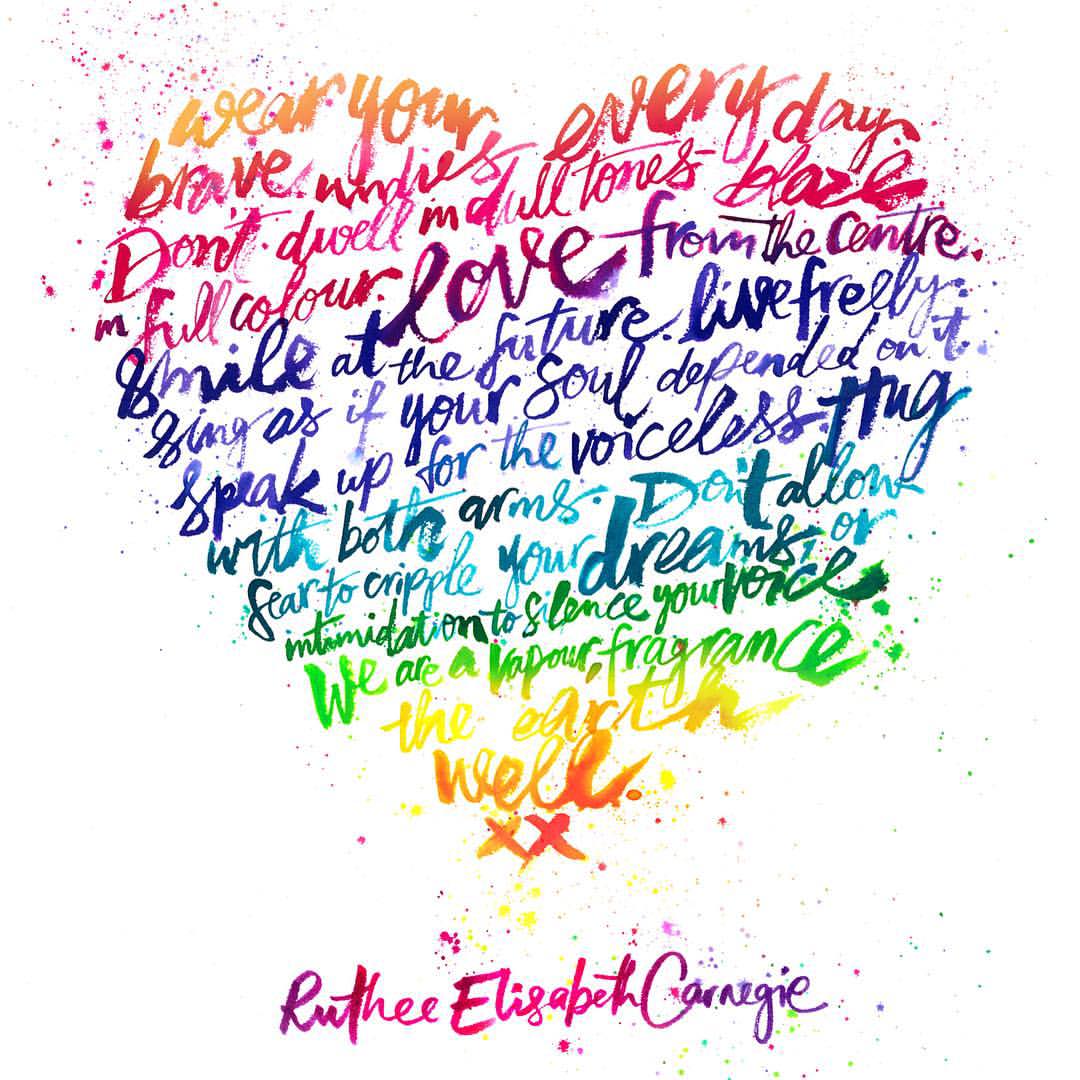 wear your every day.
brave undies
Don't dwell in dull tones - blaze
in full colour. love from the centre.
Smile at the future. live freely.
Sing as if your soul depended on it.
Speak up for the voiceless. Hug
with both arms. Don't allow
fear to cripple your dreams, or
intimidation to silence your voice
We are a vapour, fragrance
the earth
well.
xx
Ruthee Elisabeth Carnegie